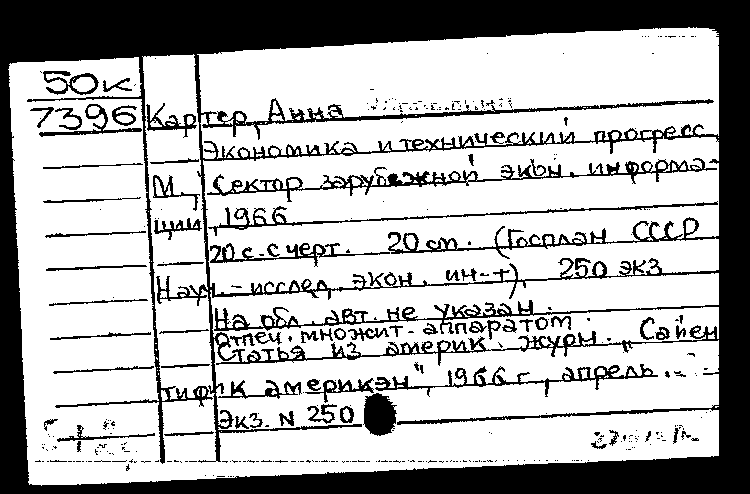 50к
7396 Картер, Анна
Экономика и технический прогресс
М., Сектор зарубежной экон. информа-
ции, 1966
20 с. с черт. 20 см. (Госплан СССР
Науч.-исслед. экон. ин-т), 250 экз
На обл. авт. не указан.
Отпеч. множит. аппаратом.
Статья из америк. журн. „Сайен
тифик америкэн", 1966 г., апрель.
Экз. N 250